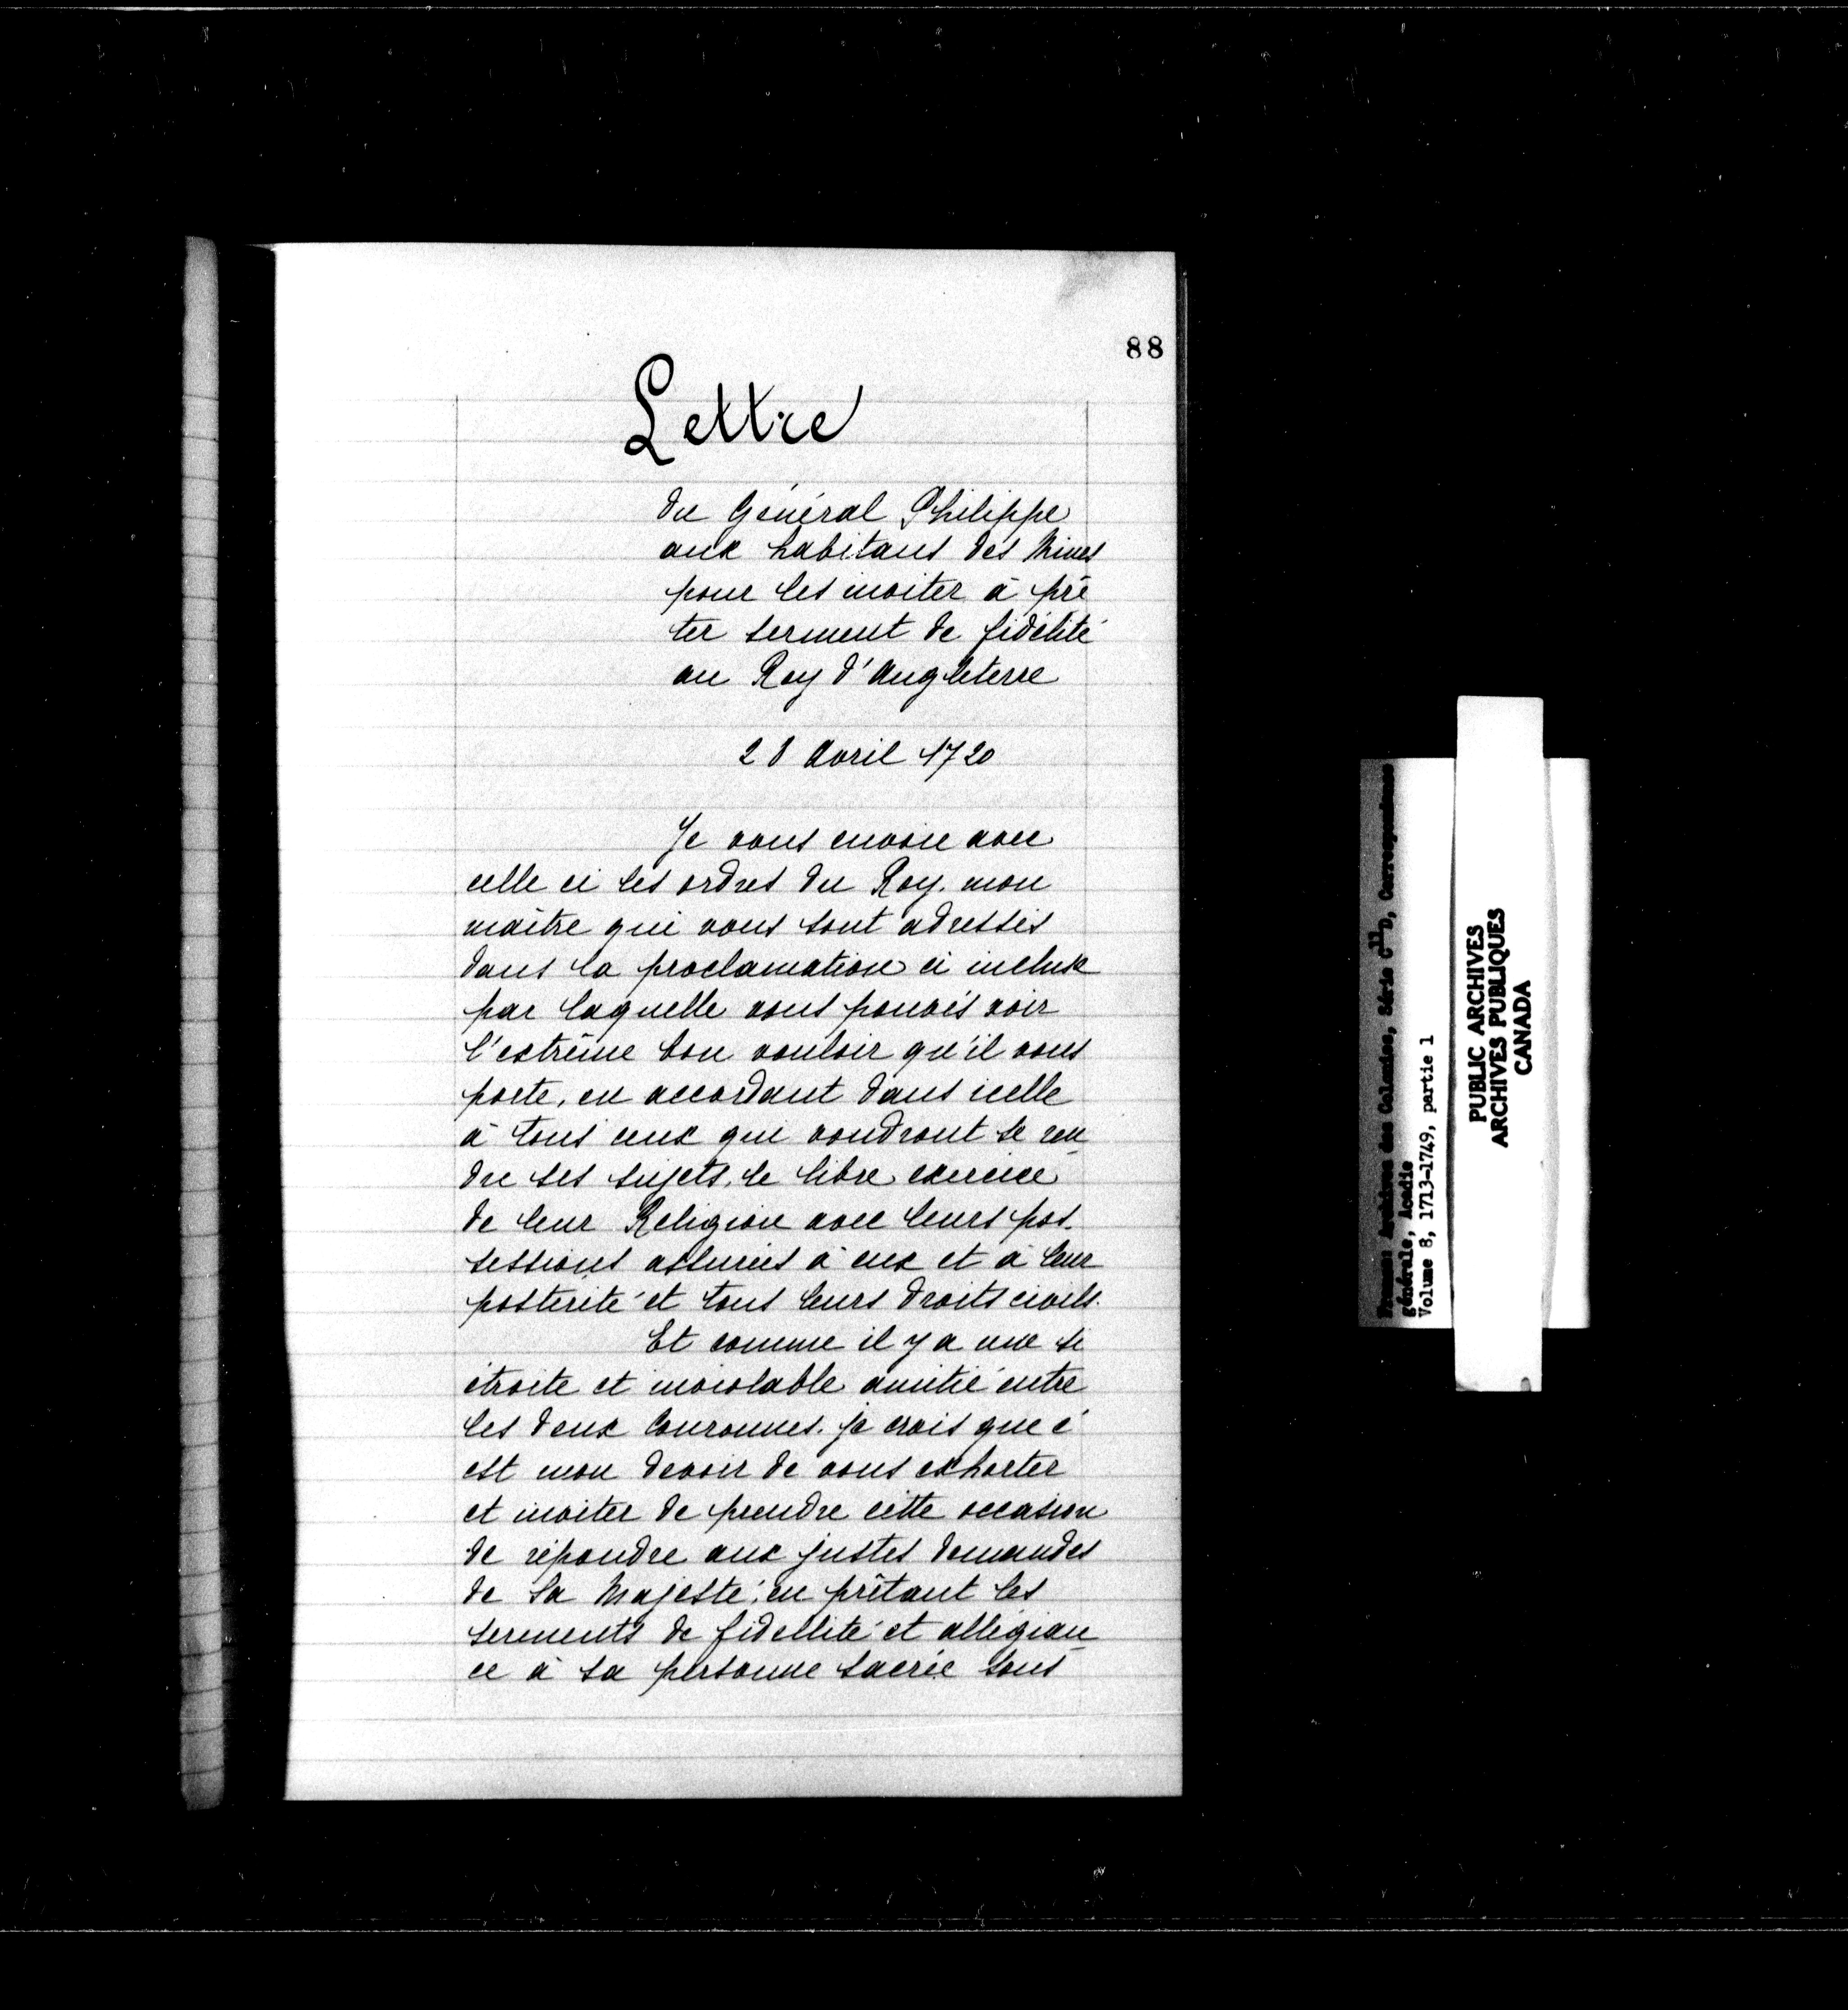 88
Lettre
du Général Philippe
aux habitans des Mines
pour les inviter à prê
ter serment de fidélité
au Roy d'Angleterre
28 Avril 1720
Je vous envoie avec
celle ci les ordres du Roy. mon
maître qui vous sont adressés
dans la proclamation ci incluse
par laquelle vous pouvés voir
l'extrême bon vouloir qu'il vous
porte, en accordant dans icelle
à tous ceux qui voudront se ren
dre ses sujets, le libre exercice
de leur Religion avec leurs pos-
sessions assurées à eux et à leur
postérité et tous leurs droits civils.
Et comme il y a une si
étroite et inviolable amitié entre
les deux Couronnes. je crois que c'
est mon devoir de vous exhorter
et inviter de prendre cette occasion
de répondre aux justes demandes
de Sa Majesté; en prêtant les
serments de fidellité et allégian
ce à sa personne sacrée sous
France Archives des Colonies, Série C11D, Correspondance
générale, Acadie
Volume 8, 1713-1749, partie 1
PUBLIC ARCHIVES
ARCHIVES PUBLIQUES
CANADA